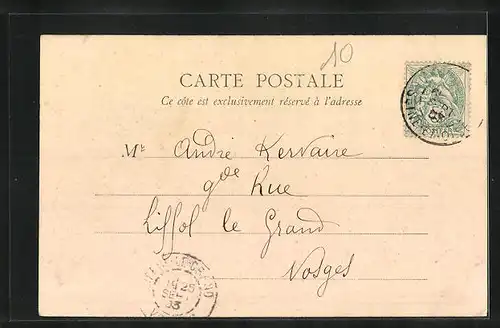 10
CARTE POSTALE
Ce côté est exclusivement réservé à l'adresse
Mr André Kervaire
gde Rue
Liffol le Grand
Vosges
25
SEPT